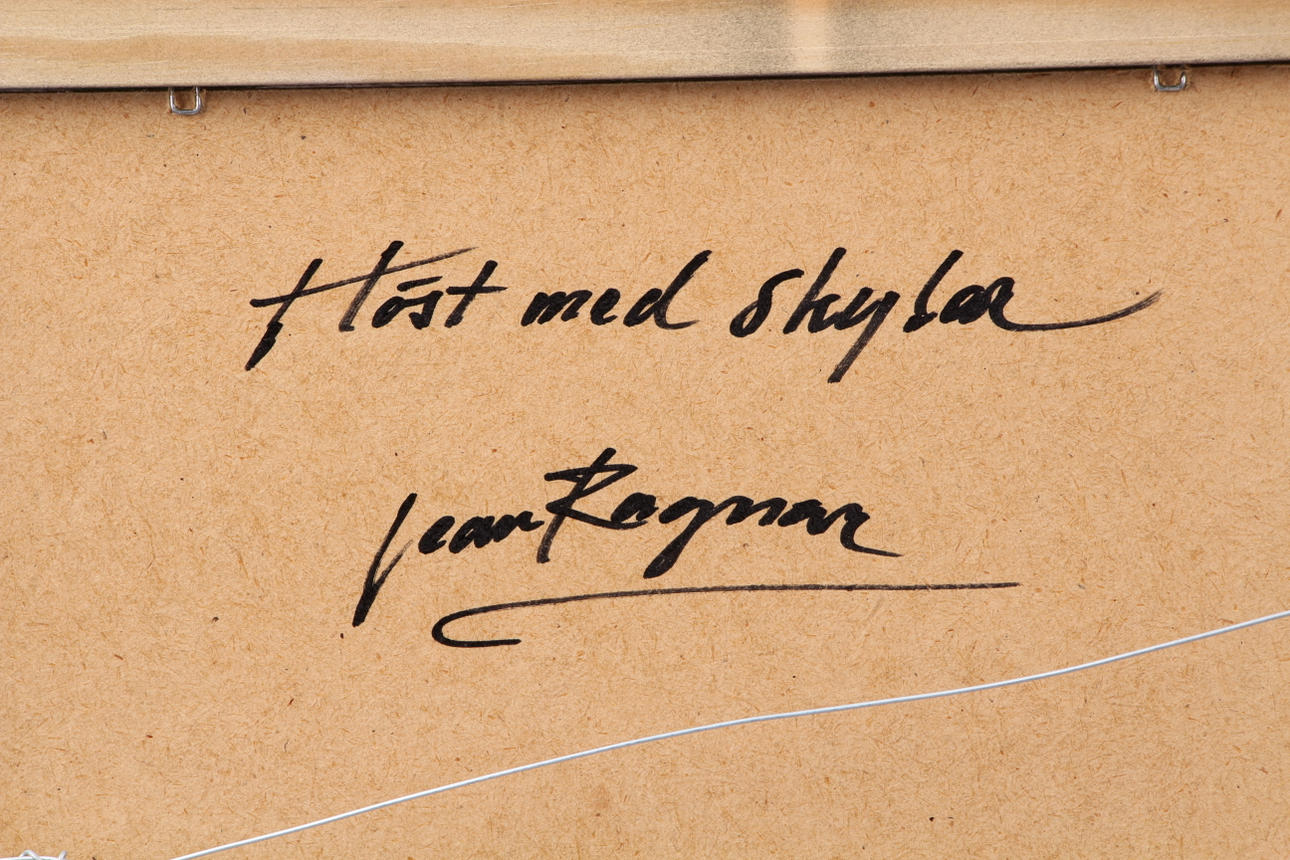 Höst med skylar
Jean Ragnar